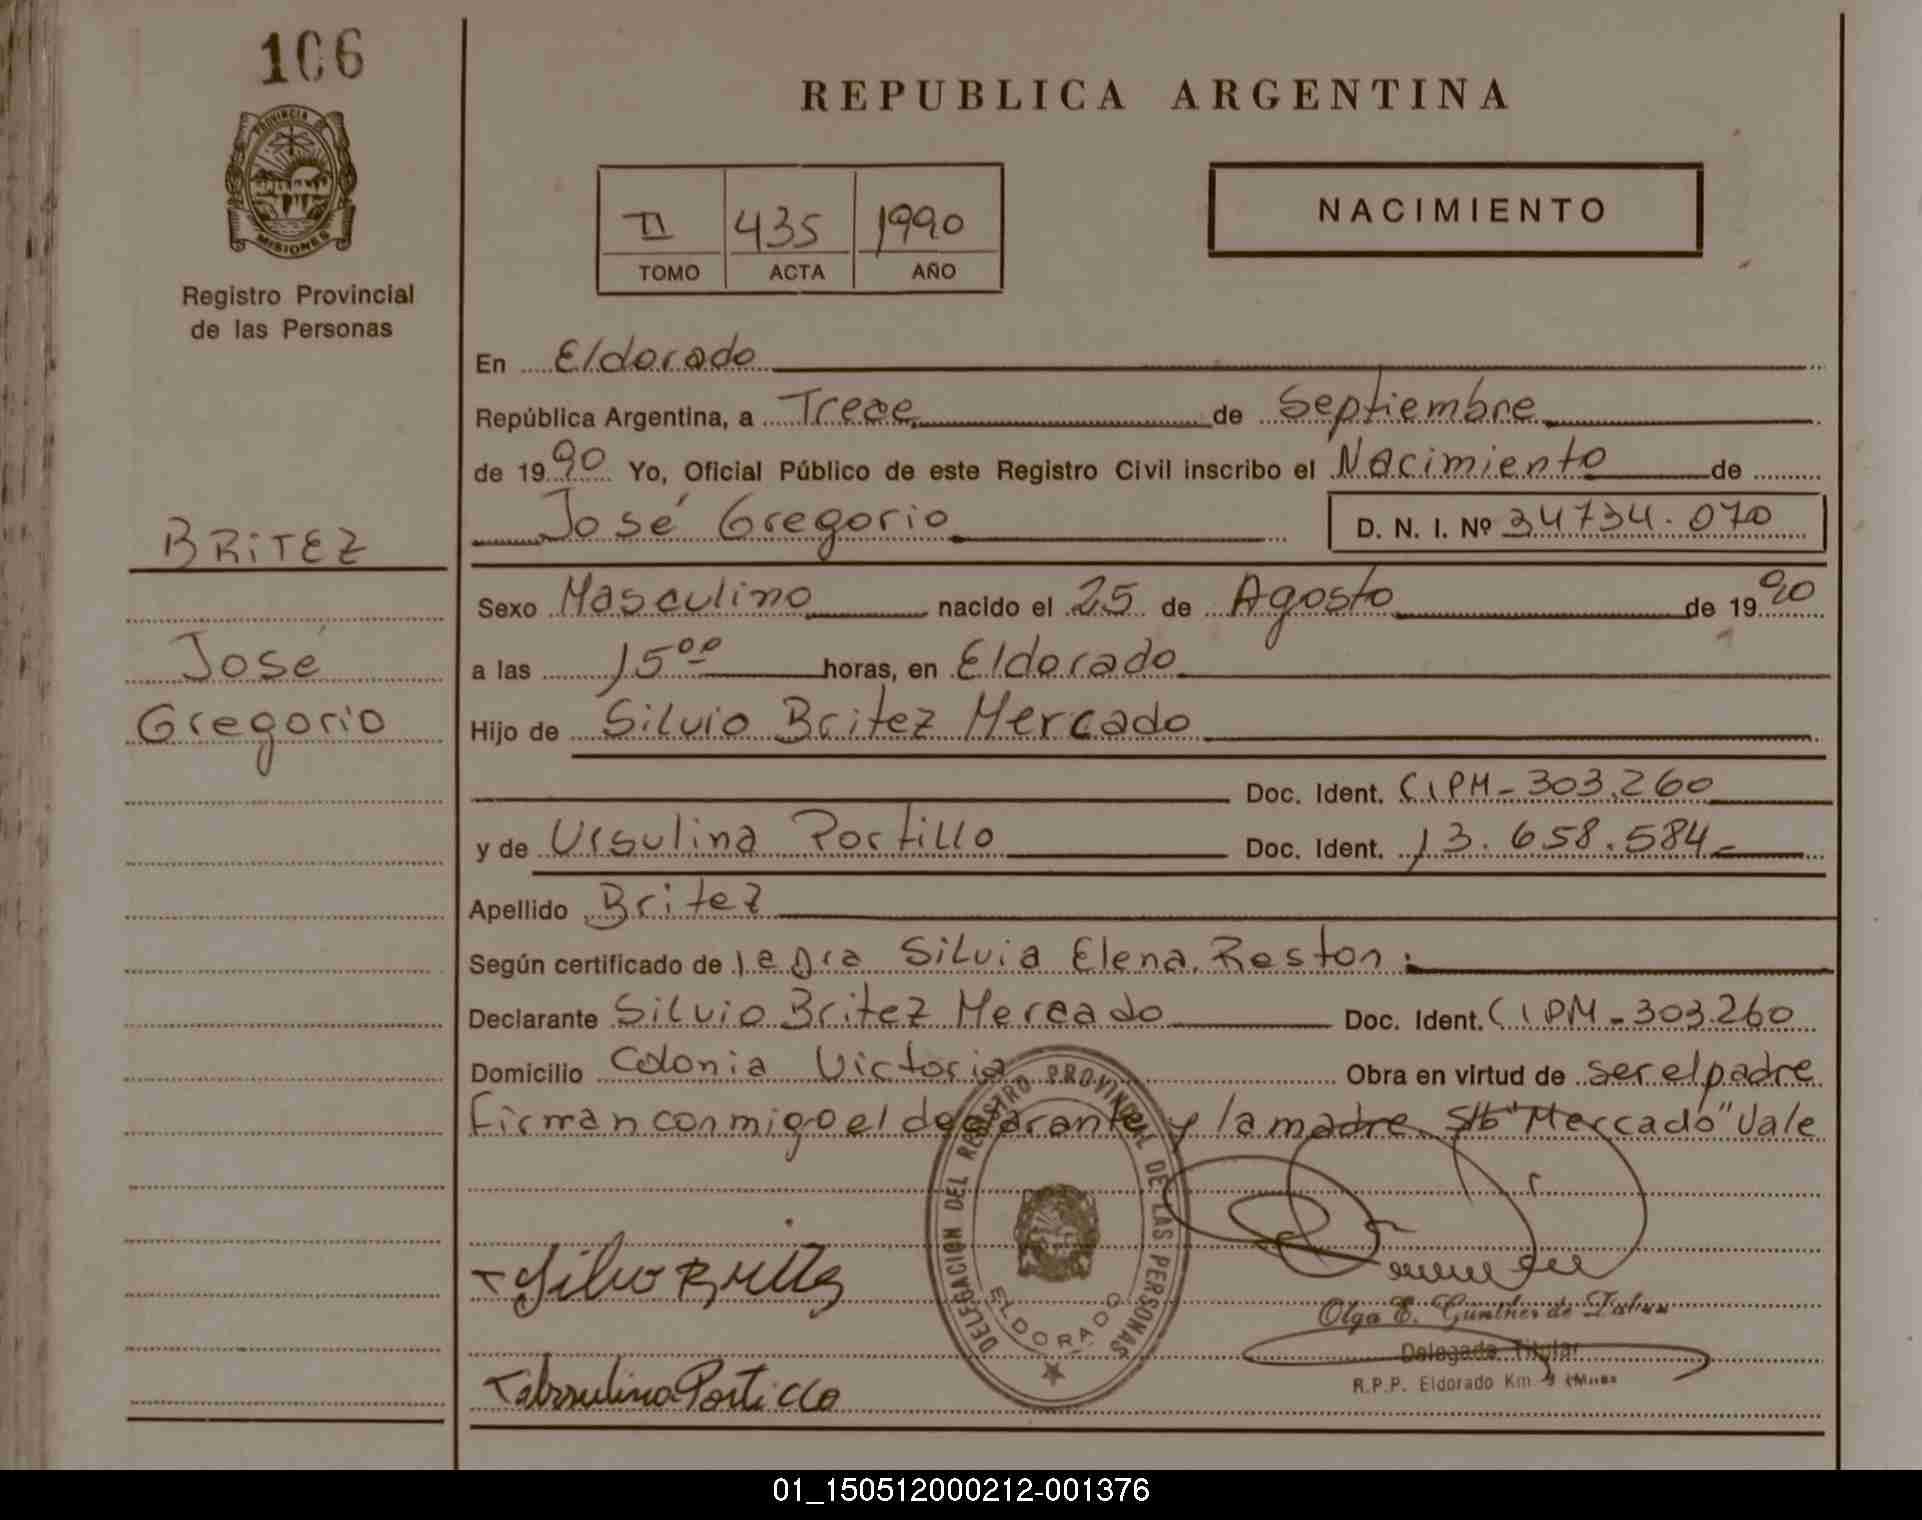 106
PROVINCIA DE
MISIONES
Registro Provincial
de las Personas
BRITEZ
José
Gregorio
REPUBLICA ARGENTINA
II 435 1990
TOMO ACTA AÑO
NACIMIENTO
En Eldorado
República Argentina, a Trece de Septiembre
de 1990 Yo, Oficial Público de este Registro Civil inscribo el Nacimiento de
José Gregorio D. N. I. Nº 34734.070
Sexo Masculino nacido el 25 de Agosto de 1990
a las 15⁰⁰ horas, en Eldorado
Hijo de Silvio Britez Mercado
Doc. Ident. CIPM-303.260
y de Ursulina Portillo Doc. Ident. 13.658.584-
Apellido Britez
Según certificado de la Dra Silvia Elena Reston.
Declarante Silvio Britez Mercado Doc. Ident. CIPM-303.260
Domicilio Colonia Victoria Obra en virtud de ser el padre
Firman conmigo el declarante y la madre. S/b "Mercado" Vale
DELEGACION DEL REGISTRO PROVINCIAL DE LAS PERSONAS
ELDORADO
Silvio Britez
Ursulina Portillo
Olga E. Gunther de
Delegada Titular
R.P.P. Eldorado Km. 9
01_150512000212-001376